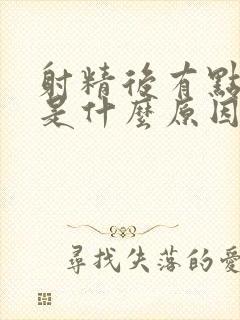 射精後有點
是什麼原因
尋找失落的愛